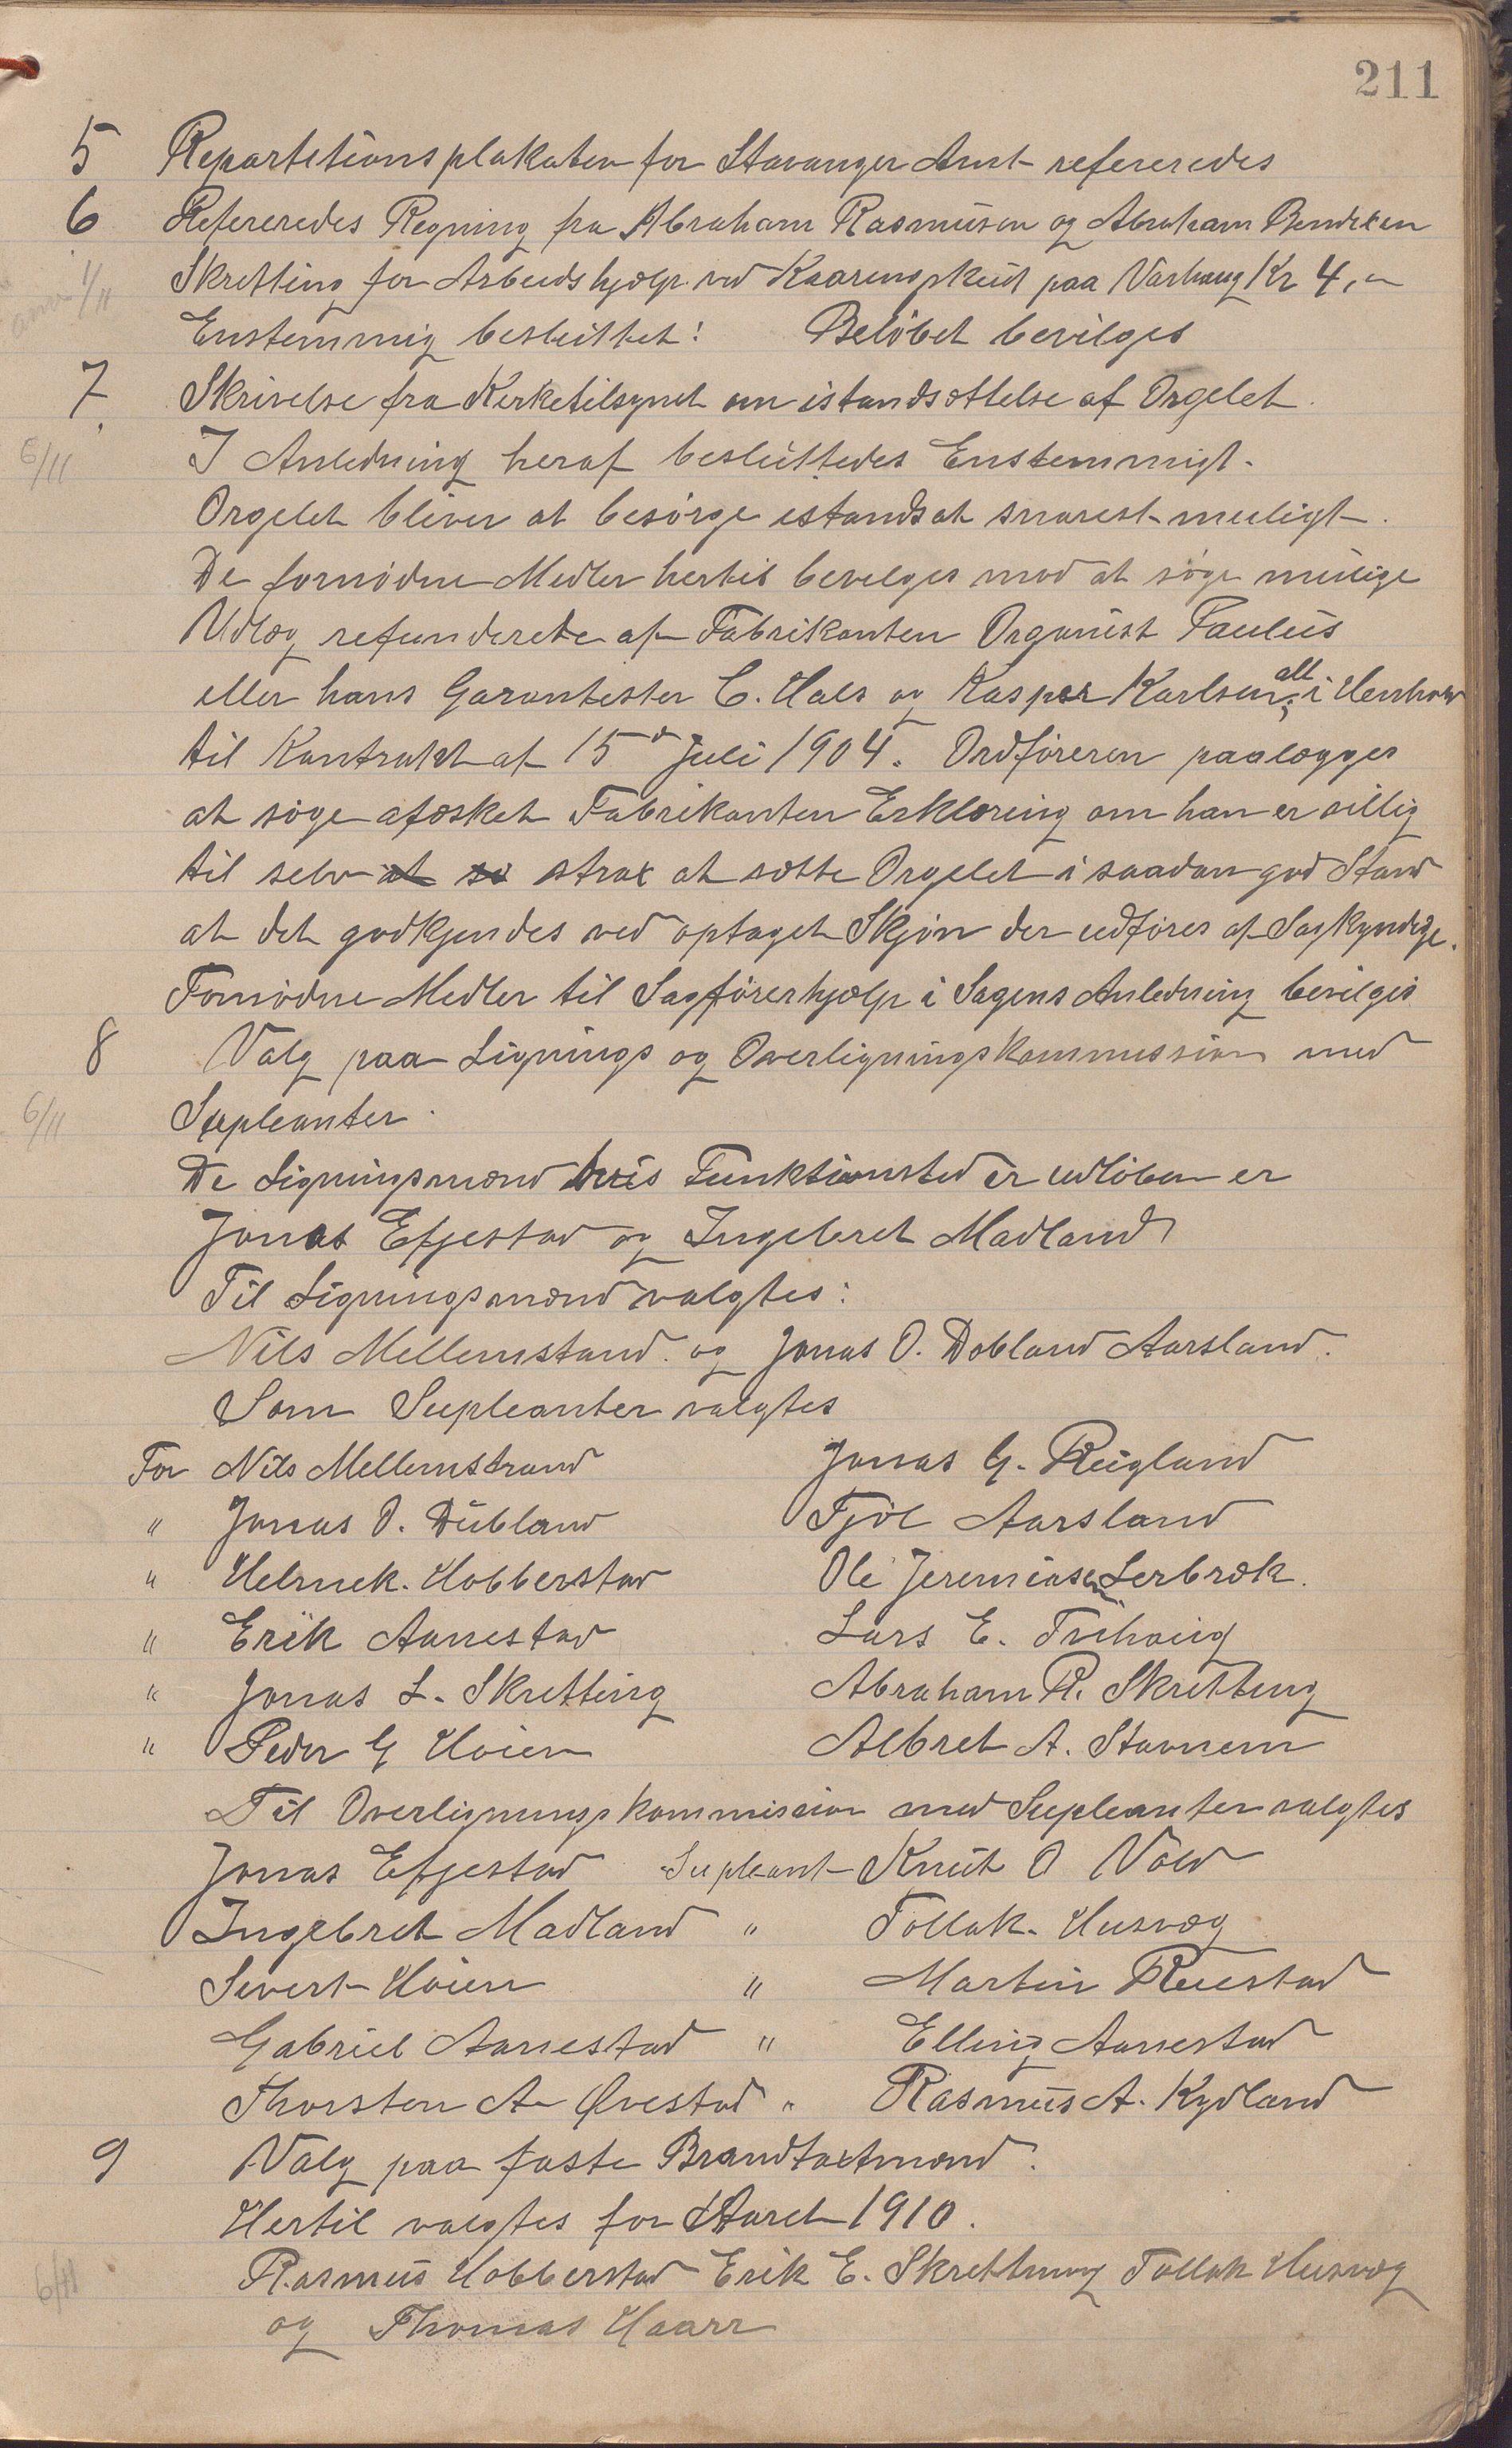 211
5 Repartitionsplakaten for Stavanger Amt refereredes
6 Refereredes Regning fra Abraham Rasmusen og Abraham Bendiksen
1/11 Skretting for Arbeidshjælp ved paa Varhaug Kr 4,-
Enstemmig besluttet: Beløbet bevilges
7 Skrivelse fra Kirketilsynet om istandsættelse af Orgelet.
6/11 I Anledning heraf besluttedes Enstemmigt.
Orgelet bliver at besørge istandsat snarest muligt.
De fornødne Midler hertil bevilges mod at søge mulige
Udlæg refunderede af Fabrikanten Organist Paulus
eller hans Garantister C. Hals og Kasper Karlsen, alt i Henhold
til Kontrakt af 15de Juli 1904. Ordføreren paalægges
at søge afæsket Fabrikanten Erklæring om han er villig
til selv at sæ strax at sætte Orgelet i saadan god Stand
at det godkjendes ved optaget Skjøn der udføres af Sagkyndige.
Fornødne Midler til Sagførerhjælp i Sagens Anledning bevilges
8 Valg paa Lignings og Overligningskommission med
6/11 Supleanter.
De Ligningsmænd hvis Funktionstid er udløben er
Jonas Efjestad og Ingebret Madland
Til Ligningsmænd valgtes:
Nils Mellemstrand og Jonas O. Dubland Aarsland.
Som Supleanter valgtes
For Nils Mellemstrand Jonas G. Rugland
" Jonas O. Dubland Fjøl Aarsland
" Helmek. Hobberstad Ole Jeremiasen Lerbræk.
" Erik Aanestad Lars E. Tuhoug
" Jonas L. Skretting Abraham R. Skretting
" Peder G Høien Albret A. Stavnem
Til Overligningskommission med Supleanter valgtes
Jonas Efjestad Supleant Knut O Vold
Ingebret Madland " Tollak Husvæg
Sivert Høien " Martin Ruestad
Gabriel Aanestad " Elling Aanestad
Thorsten A Qvestad " Rasmus A. Kydland
9 Valg paa faste Brandtaxtmænd.
Hertil valgtes for Aaret 1910.
6/11 Rasmus Hobberstad Erik E. Skretting Tollak Husvæg
og Thomas Haarr